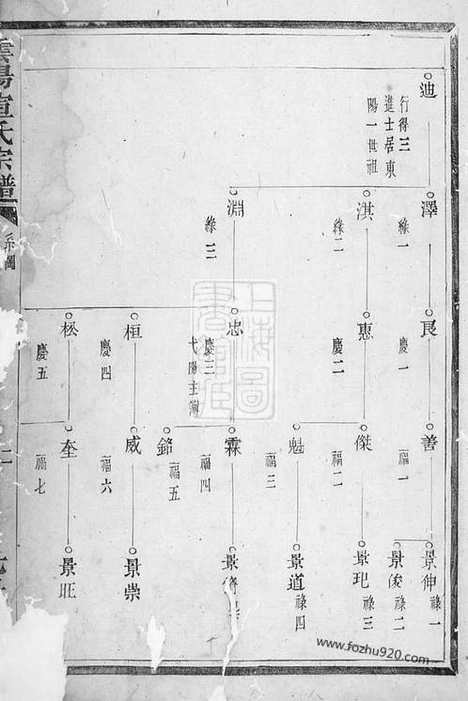 迪
行得三
進士居東
陽一世祖
澤
緣一
淇
緣二
淵
緣三
良
慶一
惠
慶二
忠
慶三
弋陽主簿
桓
慶四
松
慶五
善
福一
傑
福二
魁
福三
霖
福四
銘
福五
威
福六
奎
福七
景伸
祿一
景俊
祿二
景玘
祿三
景道
祿四
景
景崇
景旺
陽宣氏宗譜
系圖
上海圖書館藏
www.fozhu920.com